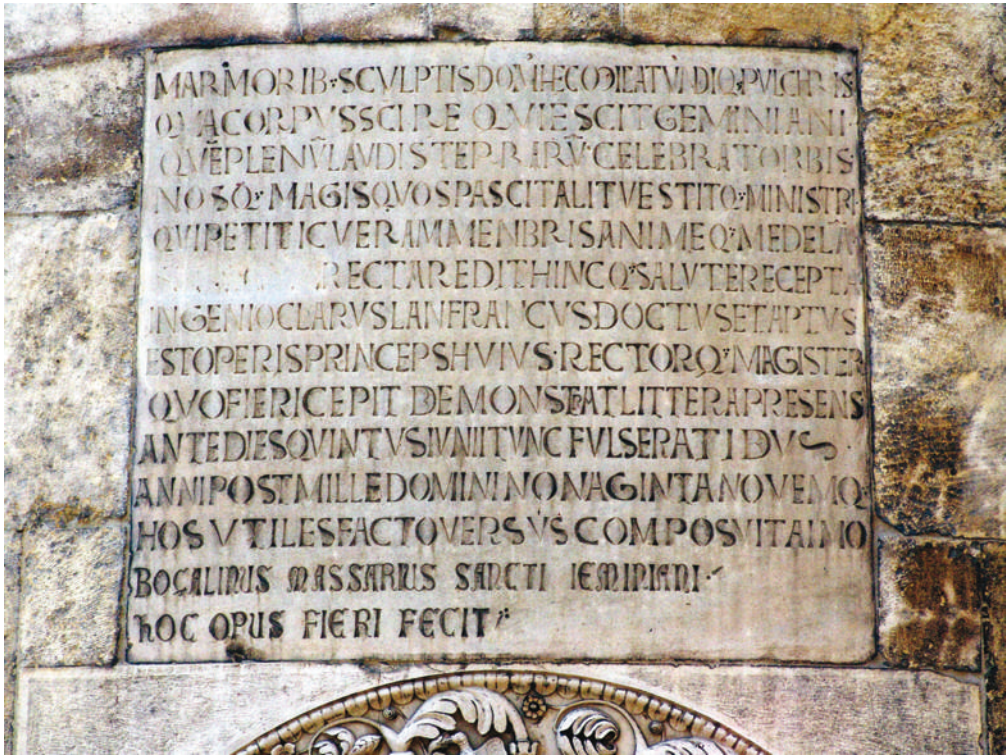 MARMORIB; SCVLPTIS DOM HEC MICAT VNDIQ; PVLCHRIS
QVA CORPVS SCI REQVIESCIT GEMINIANI
QVĒ PLENV̄ LAVDIS TERRARV̄ CELEBRAT ORBIS
NOSQ; MAGIS QVOS PASCIT ALIT VESTITQ; MINISTRI
QVI PETIT IC VERAM MENBRIS ANIMEQ; MEDELĀ
RECTA REDIT HINCQ; SALVTE RECEPTA
INGENIO CLARVS LANFRANCVS DOCTVS ET APTVS
EST OPERIS PRINCEPS HVIVS· RECTORQ; MAGISTER
QVO FIERI CEPIT DEMONSTRAT LITTERA PRESENS
ANTE DIES QVINTVS IVNII TVNC FVLSERAT IDVS
ANNI POST MILLE DOMINI NONAGINTA NOVEMQ;
HOS VTILES FACTO VERSVS COMPOSVIT AIMO
BOÇALINUS MASSARIUS SANCTI IEMINIANI·
HOC OPUS FIERI FECIT